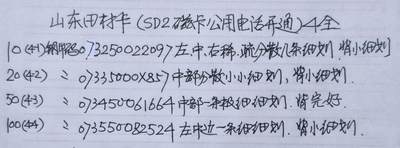 山东田村卡（SD2磁卡公用电话开通）4全
10（4-1） 073250022097左.中.右稀.疏分散几条细划.背小细划
20（4-2） 〃 07335000X857中部分散小小细划，背小细划.
50（4-3） 〃 07345006166 4中部一条极细细划.背完好.
100（4-4） 〃 073550082524左中边一条细细划.背小细划.